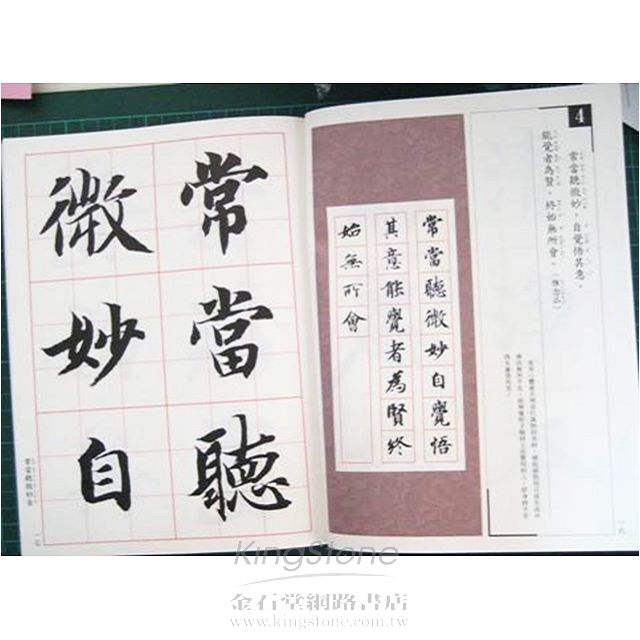 4
常當聽微妙，自覺悟其意，
能覺者為賢，終始無所會。
常當聽微妙自覺悟
其意能覺者為賢終
始無所會
一六
常當聽
微妙自
常當聽微妙自
一七
KingStone
金石堂網路書店
www.kingstone.com.tw